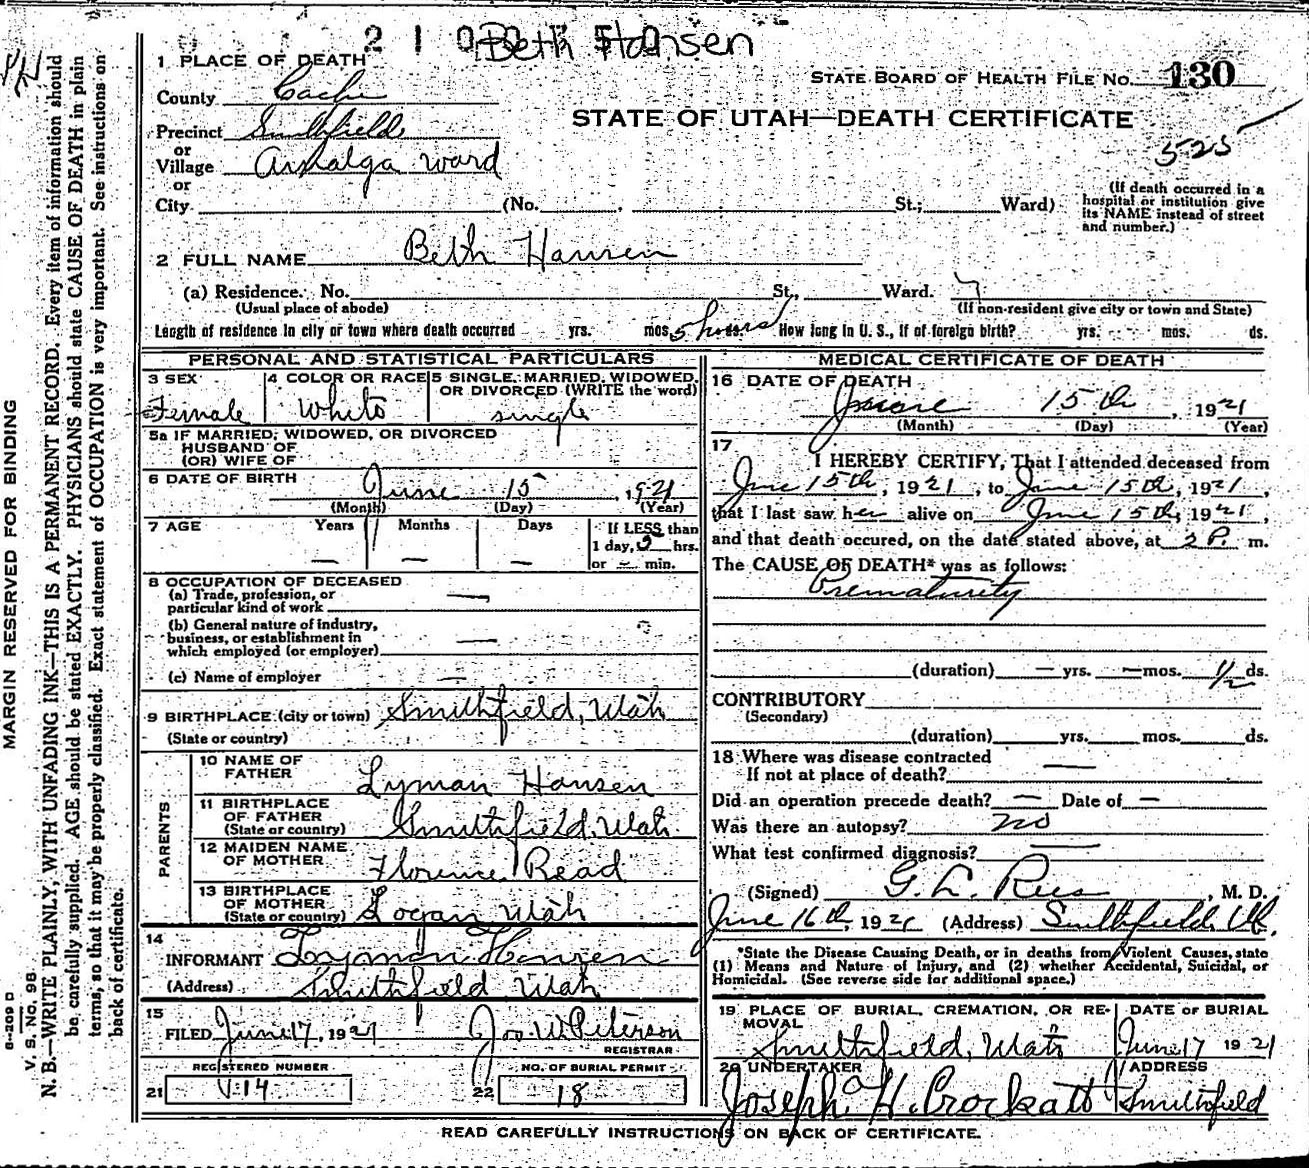 Beth Hansen
1 PLACE OF DEATH
STATE BOARD OF HEALTH FILE NO. 130
County Cache
STATE OF UTAH—DEATH CERTIFICATE
Precinct Smithfield
525
or
Village Amalga ward
or
City (No. , St.; Ward)
(If death occurred in a hospital or institution give its NAME instead of street and number.)
2 FULL NAME Beth Hansen
(a) Residence. No. St., Ward.
(Usual place of abode) (If non-resident give city or town and State)
Length of residence in city or town where death occurred yrs. mos. 5 hours How long in U. S., if of foreign birth? yrs. mos. ds.
PERSONAL AND STATISTICAL PARTICULARS
3 SEX Female
4 COLOR OR RACE White
5 SINGLE, MARRIED, WIDOWED, OR DIVORCED (WRITE the word) single
5a IF MARRIED, WIDOWED, OR DIVORCED
HUSBAND OF
(OR) WIFE OF
6 DATE OF BIRTH June 15 , 1921
(Month) (Day) (Year)
7 AGE Years — Months — Days —
If LESS than
1 day, hrs.
or — min.
8 OCCUPATION OF DECEASED
(a) Trade, profession, or
particular kind of work —
(b) General nature of industry,
business, or establishment in
which employed (or employer) —
(c) Name of employer —
9 BIRTHPLACE (city or town) Smithfield, Utah
(State or country)
PARENTS
10 NAME OF FATHER Lyman Hansen
11 BIRTHPLACE OF FATHER (State or country) Smithfield, Utah
12 MAIDEN NAME OF MOTHER Florence Read
13 BIRTHPLACE OF MOTHER (State or country) Logan Utah
14
INFORMANT Lyman Hansen
(Address) Smithfield Utah
15
FILED June 17, 1921 Jos W. Peterson
REGISTRAR
REGISTERED NUMBER
21 V.14
NO. OF BURIAL PERMIT
22 18
MEDICAL CERTIFICATE OF DEATH
16 DATE OF DEATH
June 15th , 1921
(Month) (Day) (Year)
17
I HEREBY CERTIFY, That I attended deceased from
June 15th, 1921, to June 15th, 1921,
that I last saw her alive on June 15th, 1921,
and that death occured, on the date stated above, at 2 P. m.
The CAUSE OF DEATH* was as follows:
Prematurity
(duration) — yrs. — mos. 1/2 ds.
CONTRIBUTORY
(Secondary)
(duration) yrs. mos. ds.
18 Where was disease contracted
If not at place of death? —
Did an operation precede death? — Date of —
Was there an autopsy? no
What test confirmed diagnosis? —
(Signed) G. L. Rees , M. D.
June 16th, 1921 (Address) Smithfield, Ut.
*State the Disease Causing Death, or in deaths from Violent Causes, state
(1) Means and Nature of Injury, and (2) whether Accidental, Suicidal, or
Homicidal. (See reverse side for additional space.)
19 PLACE OF BURIAL, CREMATION, OR REMOVAL
Smithfield, Utah
DATE OF BURIAL
June 17 1921
20 UNDERTAKER
Joseph H. Crockatt
ADDRESS
Smithfield
READ CAREFULLY INSTRUCTIONS ON BACK OF CERTIFICATE.
MARGIN RESERVED FOR BINDING
V. S. NO. 98
N. B.—WRITE PLAINLY, WITH UNFADING INK—THIS IS A PERMANENT RECORD. Every item of information should
be carefully supplied. AGE should be stated EXACTLY. PHYSICIANS should state CAUSE OF DEATH in plain
terms, so that it may be properly classified. Exact statement of OCCUPATION is very important. See instructions on
back of certificate.